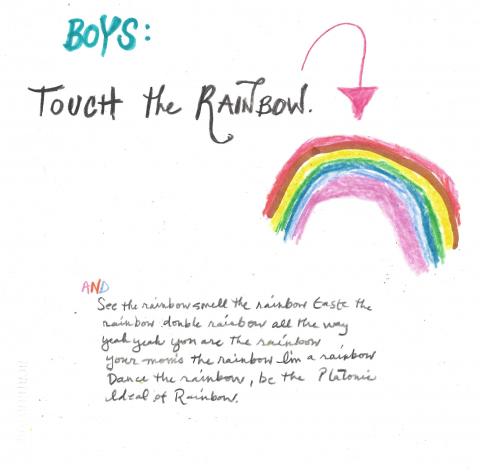 BOYS:
TOUCH the RAINBOW.
AND
See the rainbow smell the rainbow taste the
rainbow double rainbow all the way
yeah yeah you are the rainbow
your mom's the rainbow I'm a rainbow
Dance the rainbow, be the Platonic
Ideal of Rainbow.